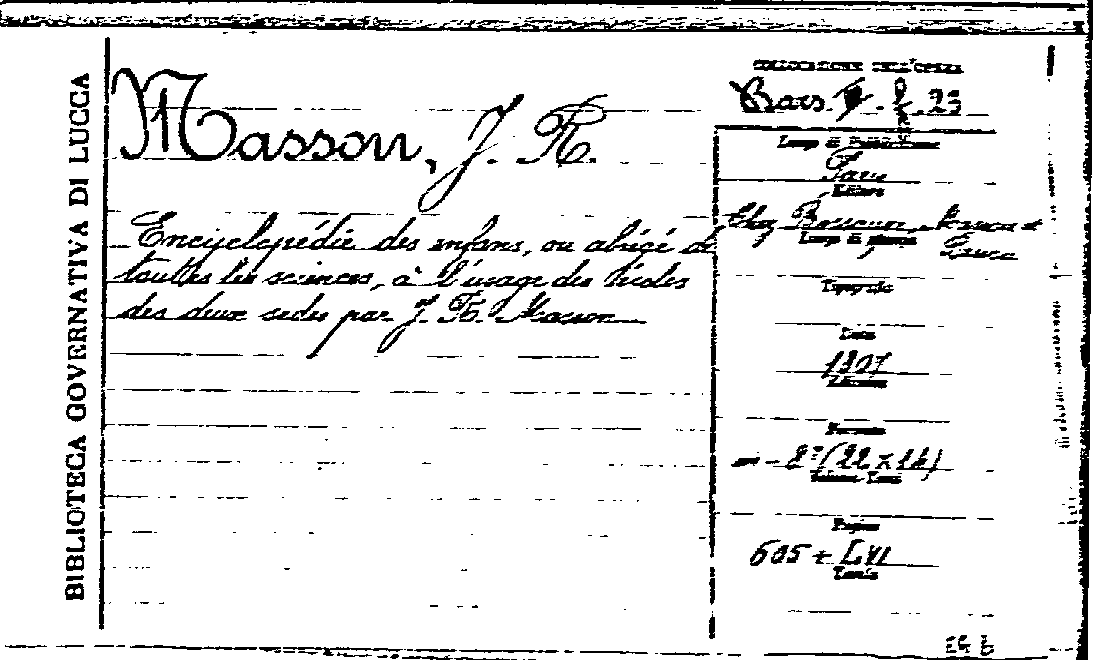 BIBLIOTECA GOVERNATIVA DI LUCCA
Masson, J. R.
Encyclopédie des enfans, ou abrégé de
toutes les sciences, à l'usage des écoles
des deux sexes par J. R. Masson
COLLOCAZIONE DELL'OPERA
23
Luogo di Pubblicazione
Paris
Editore
Chez Bossange, Masson et
Luogo di stampa
Tipografia
Data
1807
Edizione
Formato
in-8° (22 x 14)
Volume
Pagine
605 + LVI
Tavole